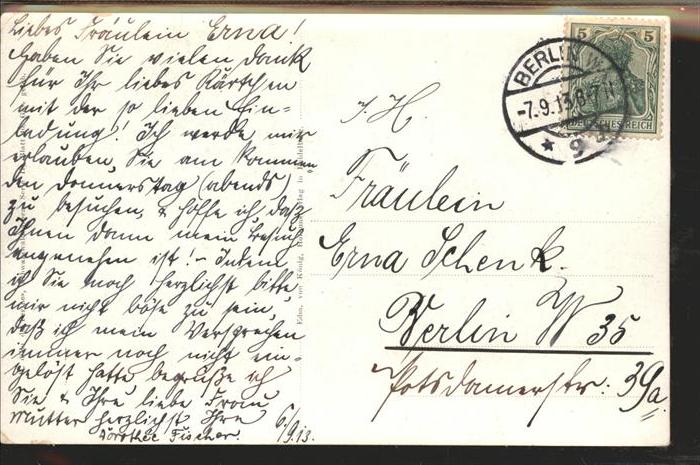 Liebes Fräulein Erna!
Haben Sie vielen Dank
für Ihr liebes Kärtchen
mit der so lieben Ein-
ladung! Ich werde mir
erlauben, Sie am kommen
den Donnerstag (abends)
zu besuchen, & hoffe ich, daß
Ihnen dann mein Besuch
angenehm ist! – Indem
ich Sie noch herzlichst bitte
mir nicht böse zu sein,
daß ich mein Versprechen
immer noch nicht ein-
gelöst hatte begrüße ich
Sie & Ihre liebe Frau
Mutter herzlichst Ihre
Dorothee Fischer.
6/9.13.
Edm. von König, Heidelberg
5 5
BERLIN W.
-7.9.13.6-7N
* 9 d
DEUTSCHES REICH
I. H.
Fräulein
Erna Schenk.
Berlin W 35
Potsdamerstr. 39a.